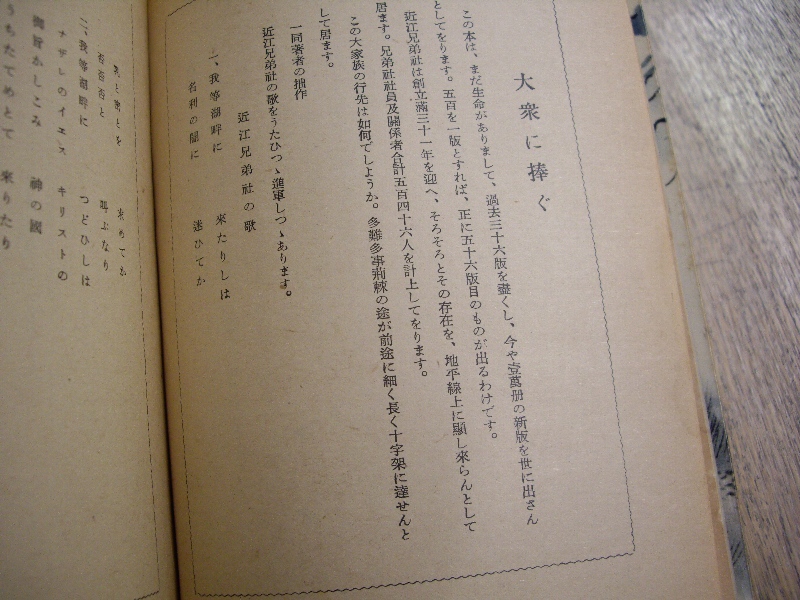 大衆に捧ぐ
この本は、まだ生命がありまして、過去三十六版を盡くし、今や壹萬册の新版を世に出さん
としてをります。五百を一版とすれば、正に五十六版目のものが出るわけです。
近江兄弟社は創立滿三十一年を迎へ、そろそろとその存在を、地平線上に顯し來らんとして
居ます。兄弟社社員及關係者合計五百四十六人を計上してをります。
この大家族の行先は如何でしようか。多難多事荊棘の途が前途に細く長く十字架に達せんと
して居ます。
一同著者の拙作
近江兄弟社の歌をうたひつゝ進軍しつゝあります。
近江兄弟社の歌
一、我等湖畔に 來たりしは
名利の爲に 迷ひてか
乳と蜜とを 求めてか
否否否と 叫ぶなり
二、我等湖畔に つどひしは
ナザレのイエス キリストの
御旨かしこみ 神の國
うちたてめとて 來りたり